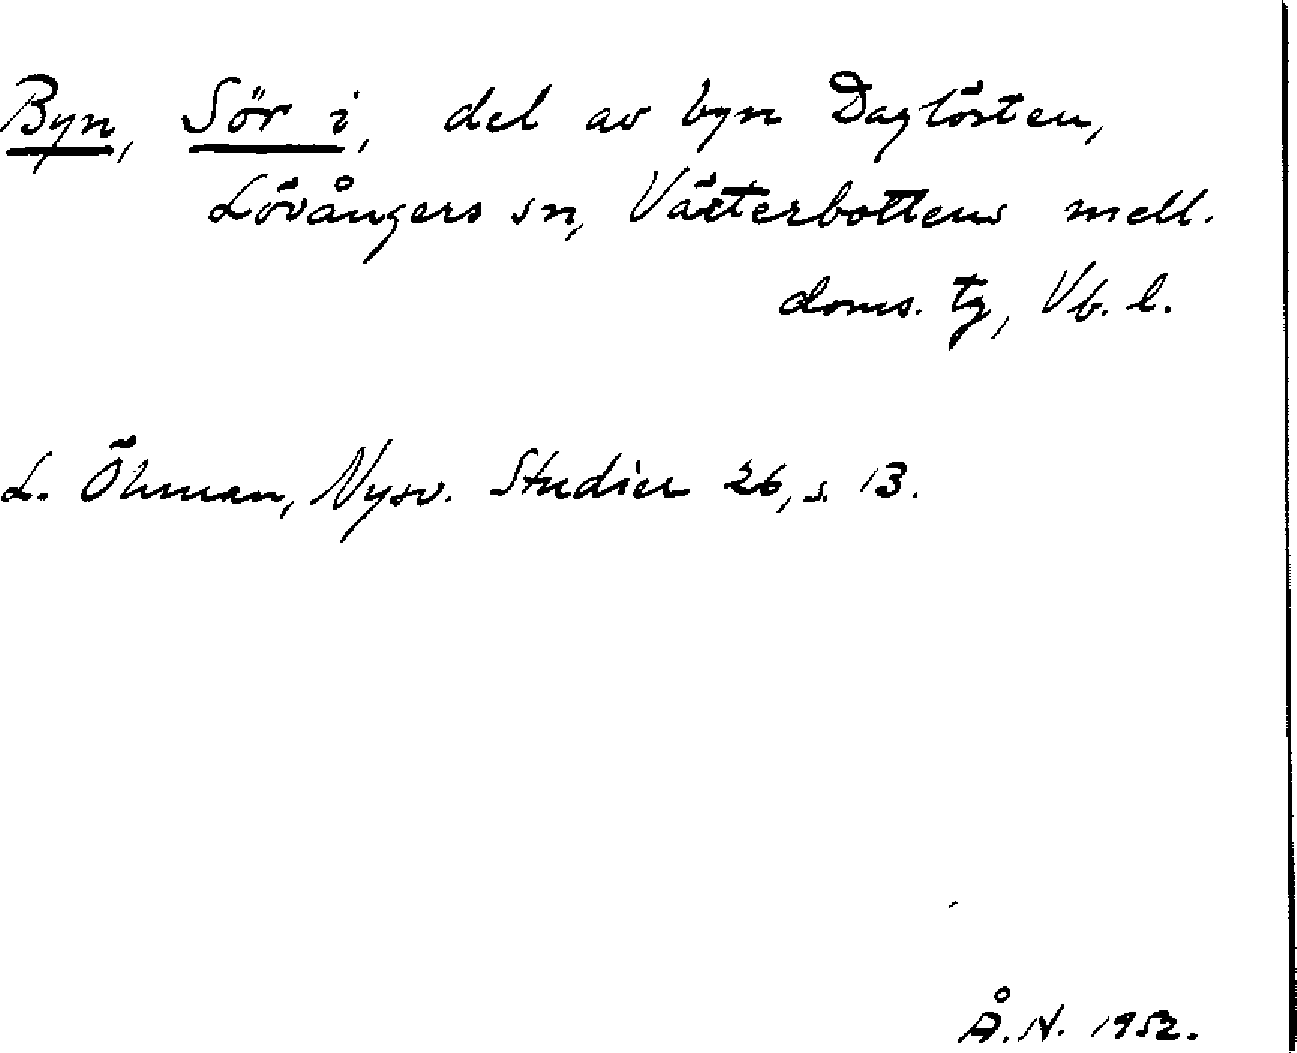 Byn, Sör i, del av byn Daglösten,
Lövångers sn, Västerbottens mell.
doms. tg, Vb. l.
L. Öhman, Nysv. Studier 26, s. 13.
Å. N. 1952.